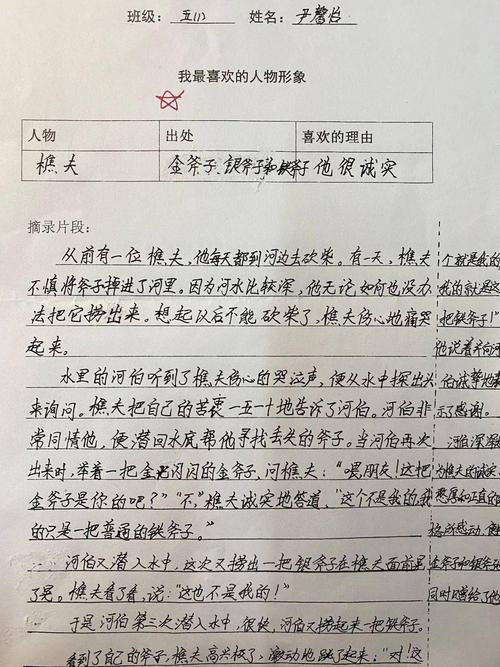 班级： 五(1) 姓名： 尹馨怡
我最喜欢的人物形象
人物 出处 喜欢的理由
樵夫 金斧子、银斧子和铁斧子 他很诚实
摘录片段：
从前有一位樵夫，他每天都到河边去砍柴。有一天，樵夫
不慎将斧子掉进了河里。因为河水比较深，他无论如何也没办
法把它捞出来。想起以后不能砍柴了，樵夫伤心地痛哭
起来。
水里的河伯听到了樵夫伤心的哭泣声，便从水中探出头
来询问。樵夫把自己的苦衷一五一十地告诉了河伯。河伯非
常同情他，便潜回水底帮他寻找丢失的斧子。当河伯再次
出来时，举着一把金光闪闪的金斧子，问樵夫："喂，朋友！这把
金斧子是你的吧？""不，"樵夫诚实地答道，"这个不是我的，我
的只是一把普通的铁斧子。"
河伯又潜入水中，这次又捞出一把银斧子在樵夫面前晃
了晃。樵夫看了看，说："这也不是我的！"
于是河伯第三次潜入水中，很快，河伯又捞起来一把铁斧子。
看到了自己的斧子，樵夫高兴极了，激动地跳了起来："对！这
个就是我的
我的就是这
把铁斧子！"
他说着并向河
伯诚挚地表
示了感谢。
河伯深深
为樵夫的诚实、
憨厚和正直的
格所感动，便
金斧子和银斧子
同时赠给了他